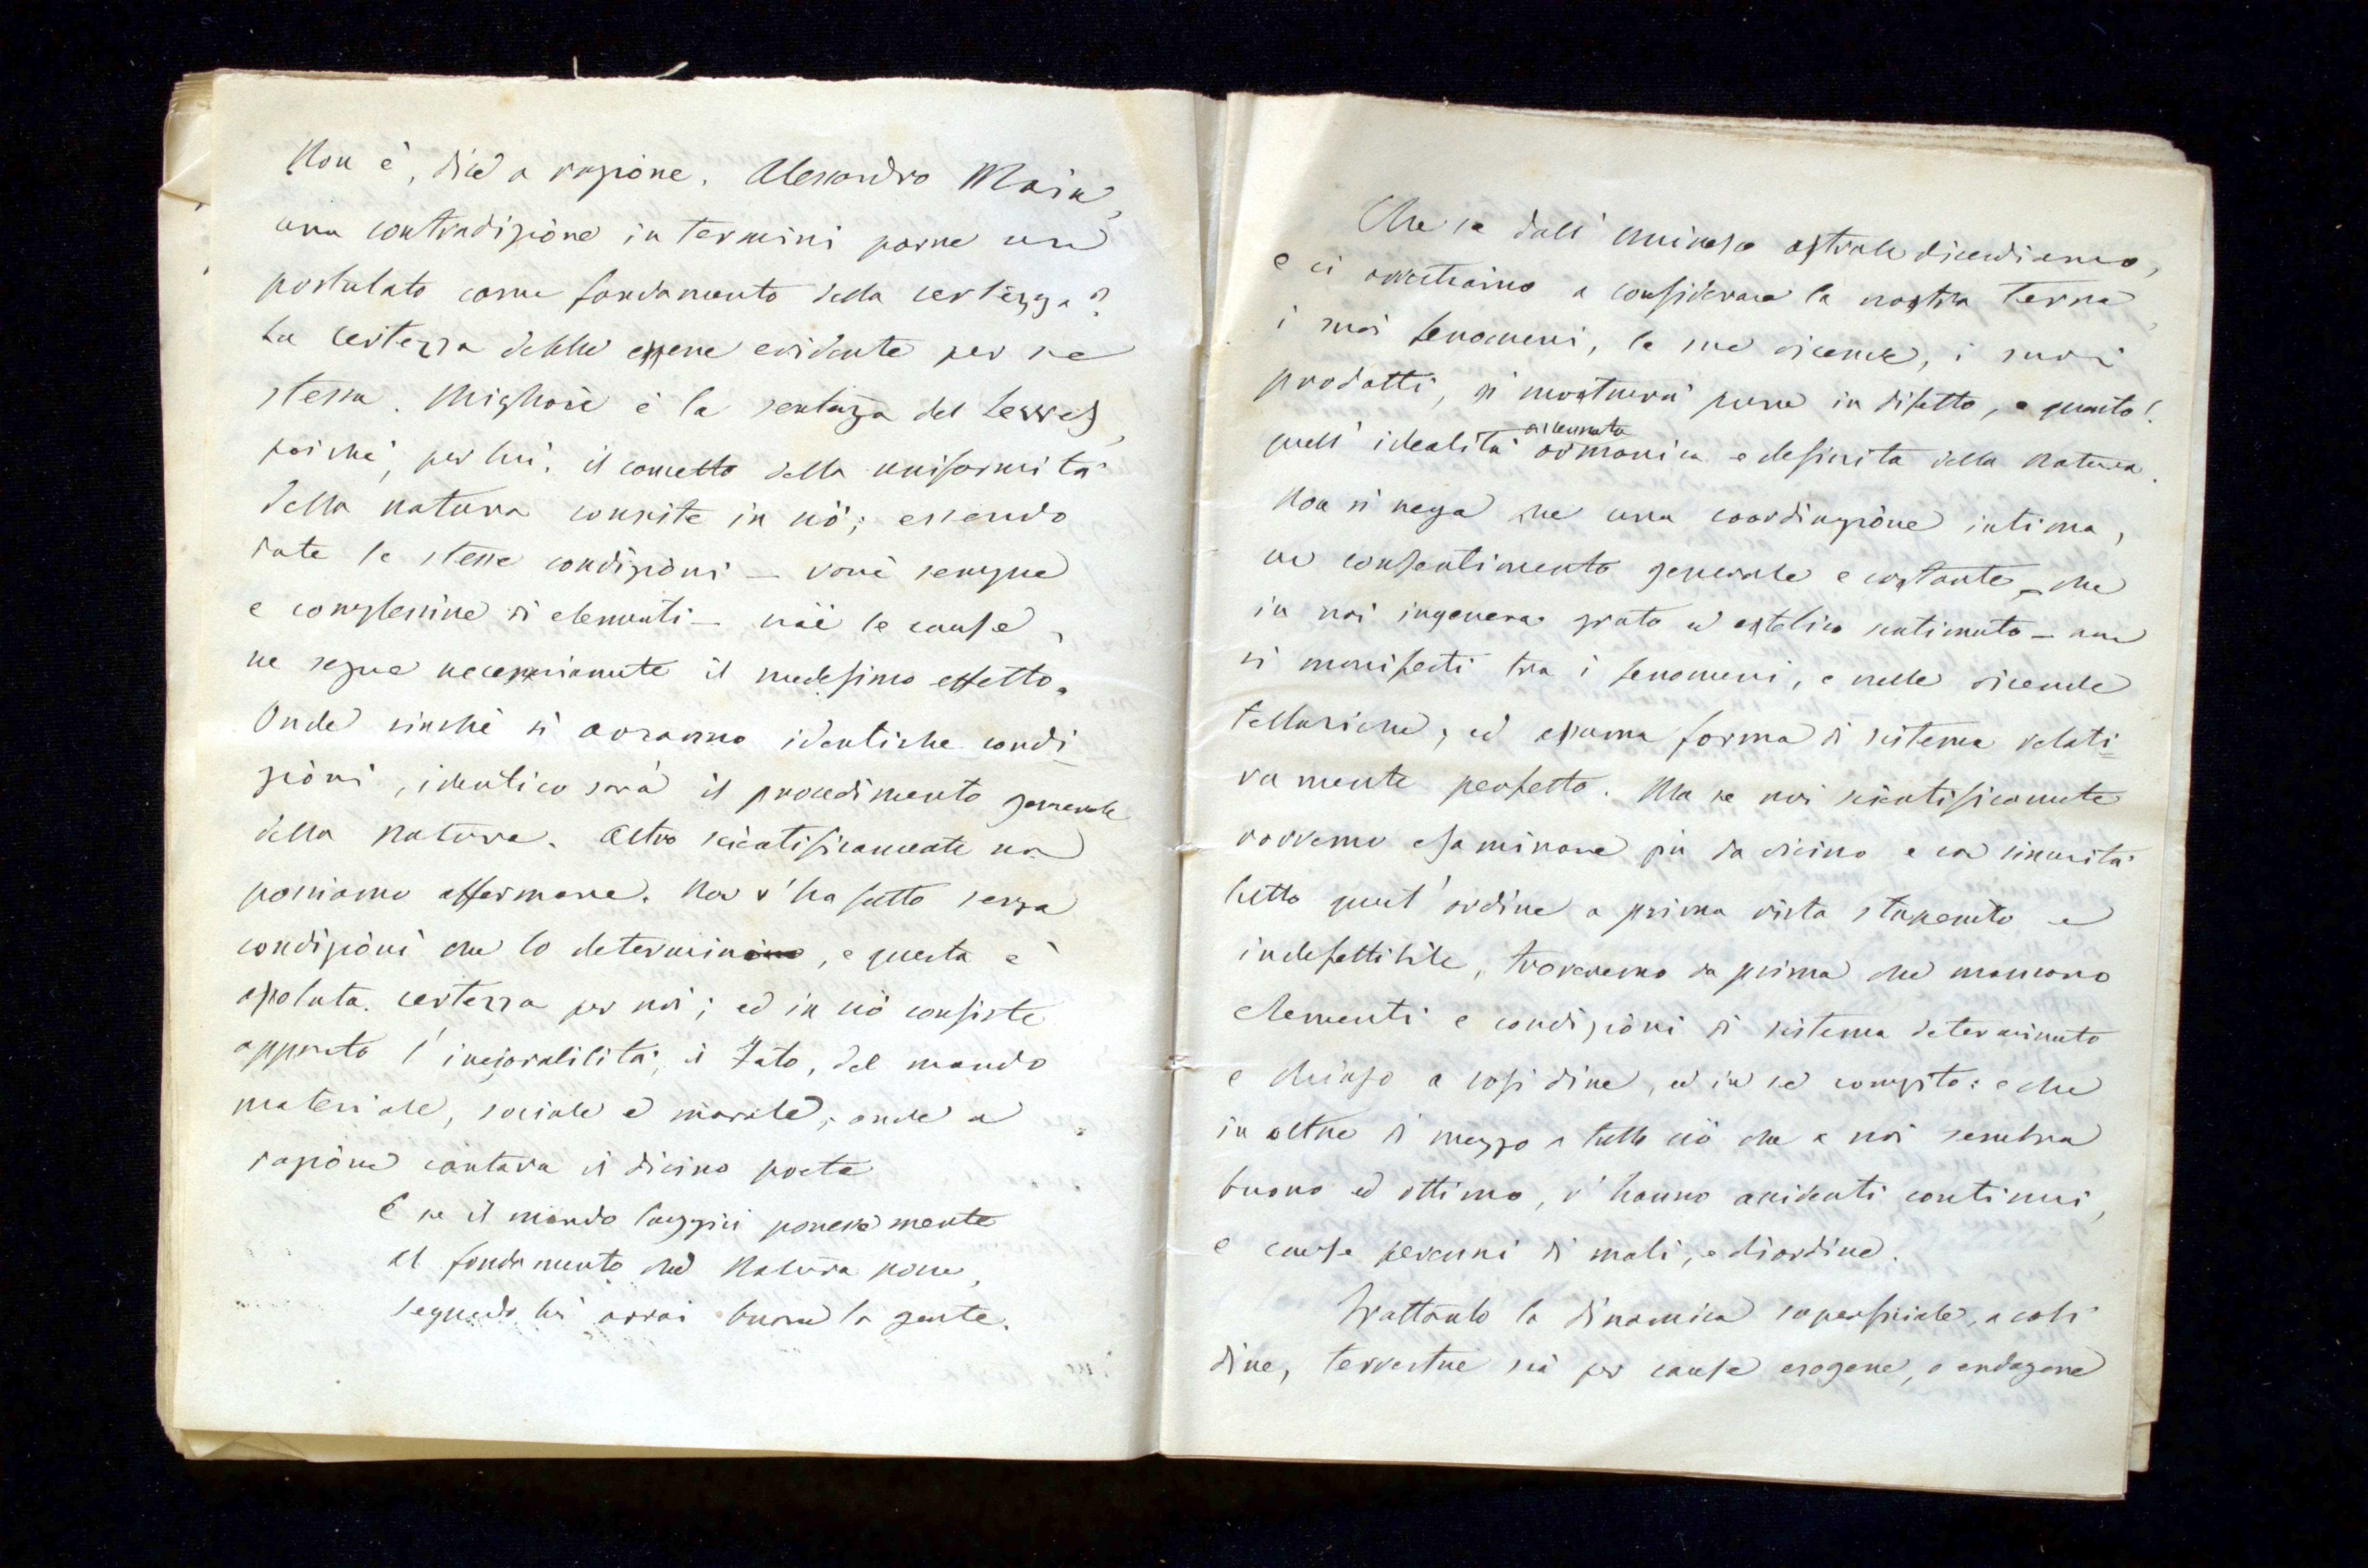 Non è, dice a ragione, Alessandro Main,
una contradizione in termini porre un
postulato come fondamento della certezza?
La certezza debbe essere evidente per se
stessa. Migliore è la sentenza del Lewes,
poichè, per lui, il concetto della uniformità
della natura consiste in ciò; essendo
date le stesse condizioni — varie sempre
e complessive di elementi — cioè le cause,
ne segue necessariamente il medesimo effetto.
Onde sinchè si avranno identiche condi-
zioni, identico sarà il procedimento generale
della natura. Altro scientificamente non
possiamo affermare. Non v'ha fatto senza
condizioni che lo determin, e questa è
assoluta certezza per noi; ed in ciò consiste
appunto l'inesorabilità, il Fato, del mondo
materiale, sociale e morale; onde a
ragione cantava il divino poeta
E se il mondo laggiù ponesse mente
Al fondamento che Natura pone,
Seguendo lui avria buona la gente.
Che se dall'universo astrale discendiamo,
e ci arrestiamo a considerare la nostra terra,
i suoi fenomeni, le sue vicende, i suoi
prodotti, si mostrerà pure in difetto, e quanto!
quell'idealità accennata armonica e definita della Natura.
Non si nega che una coordinazione intima,
un consentimento generale e costante, che
in noi ingenera grato ed estetico sentimento — non
si manifesti tra i fenomeni, e nelle vicende
telluriche, ed assuma forma di sistema relati-
vamente perfetto. Ma se noi scientificamente
vorremo esaminare più da vicino e con sincerità
tutto quest'ordine a prima vista stupendo e
indefettibile, troveremo da prima che mancano
elementi e condizioni di sistema determinato
e chiuso a così dire, ed in se compito: e che
in oltre di mezzo a tutto ciò che a noi sembra
buono ed ottimo, v'hanno accidenti continui,
e cause perenni di mali, e disordine.
Frattanto la dinamica superficiale, a così
dire, terrestre sia per cause esogene, o endogene